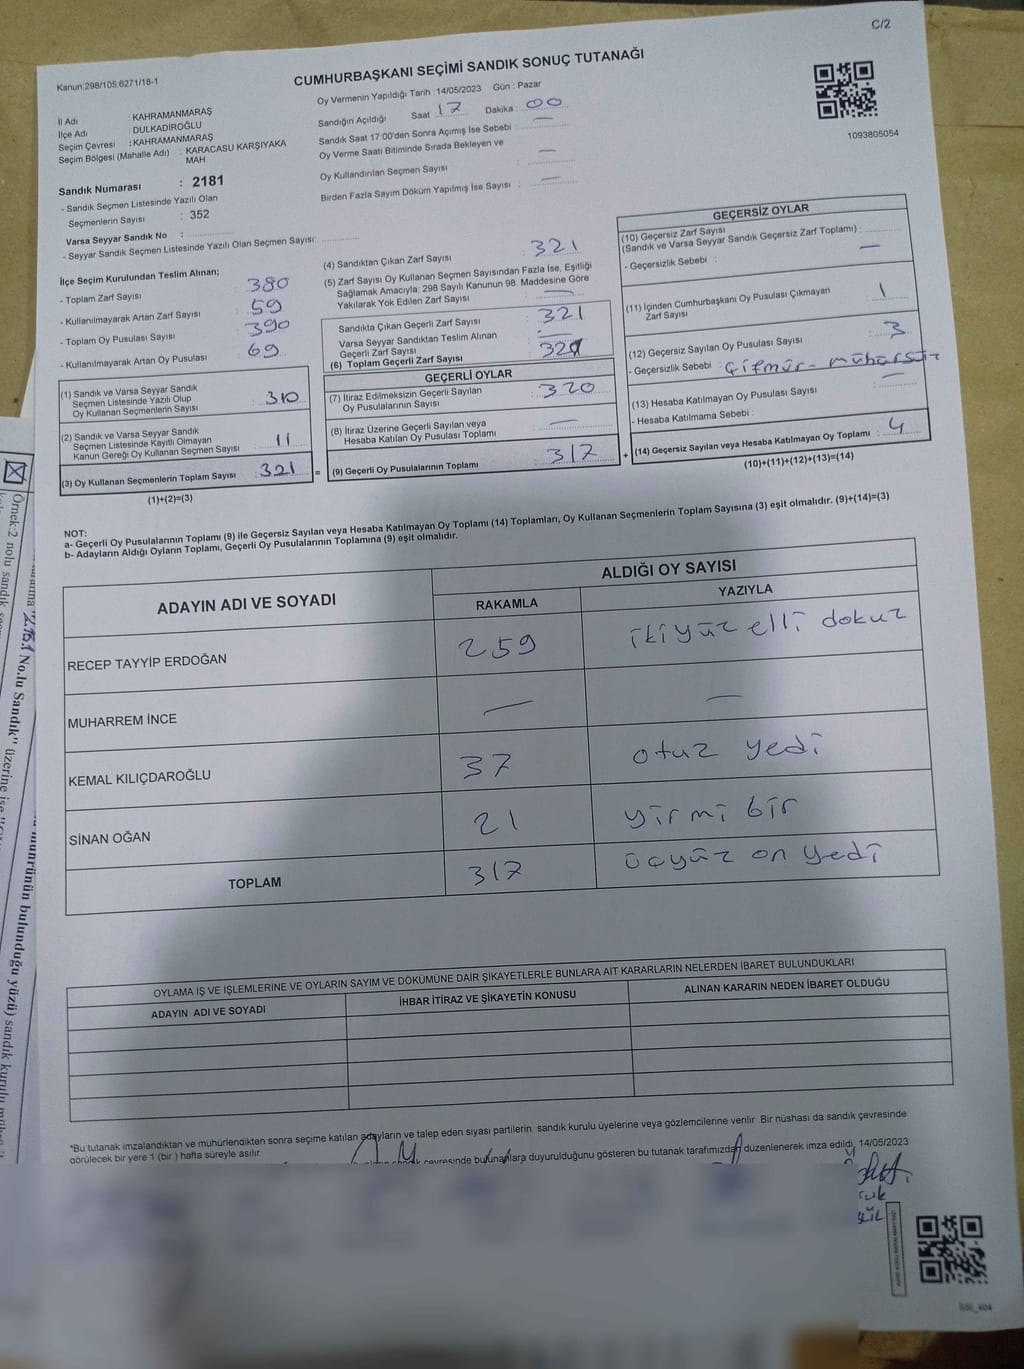 C/2
Kanun,298/105,6271/18-1
CUMHURBAŞKANI SEÇİMİ SANDIK SONUÇ TUTANAĞI
Oy Vermenin Yapıldığı Tarih : 14/05/2023 Gün : Pazar
Sandığın Açıldığı Saat 17 Dakika 00
Sandık Saat 17:00'den Sonra Açımış İse Sebebi : —
Oy Verme Saati Bitiminde Sırada Bekleyen ve
Oy Kullandırılan Seçmen Sayısı : —
Birden Fazla Sayım Döküm Yapılmış İse Sayısı : —
1093805054
İl Adı : KAHRAMANMARAŞ
İlçe Adı : DULKADİROĞLU
Seçim Çevresi : KAHRAMANMARAŞ
Seçim Bölgesi (Mahalle Adı) : KARACASU KARŞIYAKA
MAH.
Sandık Numarası : 2181
- Sandık Seçmen Listesinde Yazılı Olan
Seçmenlerin Sayısı : 352
Varsa Seyyar Sandık No :
- Seyyar Sandık Seçmen Listesinde Yazılı Olan Seçmen Sayısı:
İlçe Seçim Kurulundan Teslim Alınan;
- Toplam Zarf Sayısı : 380
- Kullanılmayarak Artan Zarf Sayısı : 59
- Toplam Oy Pusulası Sayısı : 390
- Kullanılmayarak Artan Oy Pusulası : 69
(1) Sandık ve Varsa Seyyar Sandık
Seçmen Listesinde Yazılı Olup
Oy Kullanan Seçmenlerin Sayısı : 310
(2) Sandık ve Varsa Seyyar Sandık
Seçmen Listesinde Kayıtlı Olmayan
Kanun Gereği Oy Kullanan Seçmen Sayısı : 11
(3) Oy Kullanan Seçmenlerin Toplam Sayısı : 321 =
(1)+(2)=(3)
(4) Sandıktan Çıkan Zarf Sayısı : 321
(5) Zarf Sayısı Oy Kullanan Seçmen Sayısından Fazla İse, Eşitliği
Sağlamak Amacıyla, 298 Sayılı Kanunun 98. Maddesine Göre
Yakılarak Yok Edilen Zarf Sayısı : —
Sandıkta Çıkan Geçerli Zarf Sayısı : 321
Varsa Seyyar Sandıktan Teslim Alınan
Geçerli Zarf Sayısı : —
(6) Toplam Geçerli Zarf Sayısı : 321
GEÇERLİ OYLAR
(7) İtiraz Edilmeksizin Geçerli Sayılan
Oy Pusulalarının Sayısı : 320
(8) İtiraz Üzerine Geçerli Sayılan veya
Hesaba Katılan Oy Pusulası Toplamı : —
(9) Geçerli Oy Pusulalarının Toplamı : 317 +
GEÇERSİZ OYLAR
(10) Geçersiz Zarf Sayısı
(Sandık ve Varsa Seyyar Sandık Geçersiz Zarf Toplamı) : —
- Geçersizlik Sebebi :
(11) İçinden Cumhurbaşkanı Oy Pusulası Çıkmayan
Zarf Sayısı : 1
(12) Geçersiz Sayılan Oy Pusulası Sayısı : 3
- Geçersizlik Sebebi :
(13) Hesaba Katılmayan Oy Pusulası Sayısı : —
- Hesaba Katılmama Sebebi :
(14) Geçersiz Sayılan veya Hesaba Katılmayan Oy Toplamı : 4
(10)+(11)+(12)+(13)=(14)
NOT:
a- Geçerli Oy Pusulalarının Toplamı (9) ile Geçersiz Sayılan veya Hesaba Katılmayan Oy Toplamı (14) Toplamları, Oy Kullanan Seçmenlerin Toplam Sayısına (3) eşit olmalıdır. (9)+(14)=(3)
b- Adayların Aldığı Oyların Toplamı, Geçerli Oy Pusulalarının Toplamına (9) eşit olmalıdır.
ADAYIN ADI VE SOYADI
ALDIĞI OY SAYISI
RAKAMLA YAZIYLA
RECEP TAYYİP ERDOĞAN 259 ikiyüz elli dokuz
MUHARREM İNCE — —
KEMAL KILIÇDAROĞLU 37 otuz yedi
SİNAN OĞAN 21 yirmi bir
TOPLAM 317 üçyüz on yedi
OYLAMA İŞ VE İŞLEMLERİNE VE OYLARIN SAYIM VE DÖKÜMÜNE DAİR ŞİKAYETLERLE BUNLARA AİT KARARLARIN NELERDEN İBARET BULUNDUKLARI
ADAYIN ADI VE SOYADI İHBAR İTİRAZ VE ŞİKAYETİN KONUSU ALINAN KARARIN NEDEN İBARET OLDUĞU
*Bu tutanak imzalandıktan ve mühürlendikten sonra seçime katılan adayların ve talep eden siyasi partilerin sandık kurulu üyelerine veya gözlemcilerine verilir. Bir nüshası da sandık çevresinde
görülecek bir yere 1 (bir ) hafta süreyle asılır.
çevresinde bulunanlara duyurulduğunu gösteren bu tutanak tarafımızdan düzenlenerek imza edildi. 14/05/2023
Örnek:2 nolu sandık
No.lu Sandık" üzerine ise
mührünün bulunduğu yüzü) sandık kurulu